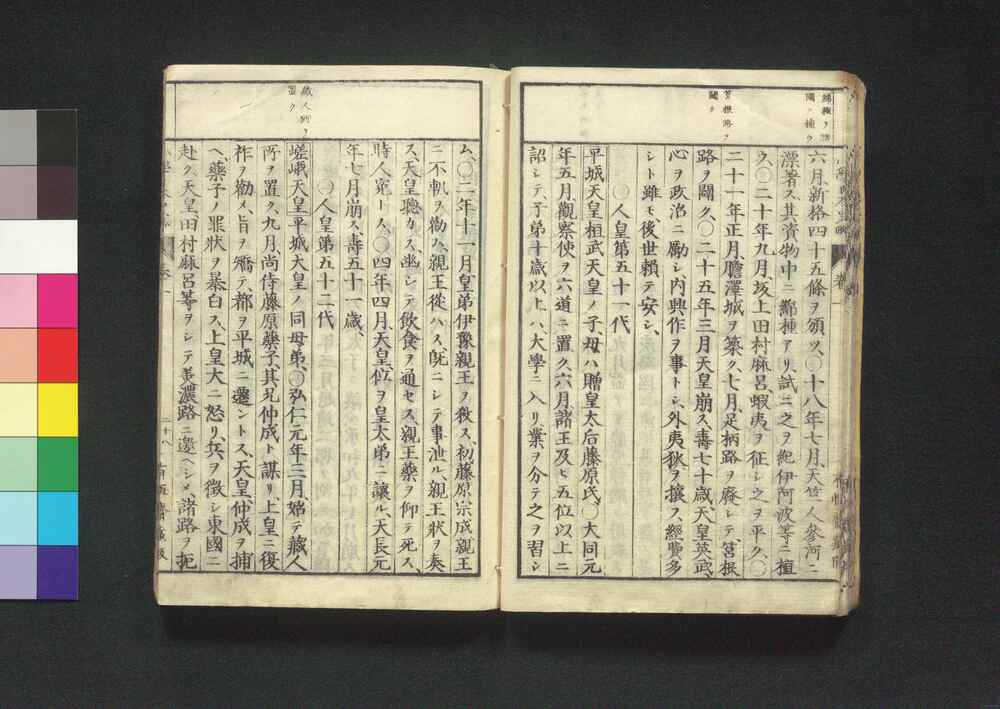 六月新格四十五條ヲ頒ツ、〇十八年七月、天竺人參河ニ
漂著ス其賷物中ニ綿種アリ、試ニ之ヲ紀伊阿波等ニ植
ク、〇二十年九月坂上田村麻呂蝦夷ヲ征シ之ヲ平ク、〇
二十一年正月、膽澤城ヲ築ク、七月、足柄路ヲ廢シテ、筥根
路ヲ闢ク、〇二十五年三月天皇崩ス、壽七十歳、天皇英武、
心ヲ政治ニ勵シ、内興作ヲ事トシ、外夷狄ヲ攘ス、經費多
シト雖モ、後世頼テ安シ、
〇人皇第五十一代
平城天皇桓武天皇ノ子、母ハ贈皇太后藤原氏、〇大同元
年五月、觀察使ヲ六道ニ置ク、六月諸王及ヒ五位以上ニ
詔シテ、子弟十歳以上ハ、大學ニ入リ、業ヲ分テ之ヲ習シ
筥根路ヲ
闢ク
ム、〇二年十一月皇弟伊豫親王ヲ殺ス、初藤原宗成親王
ニ不軌ヲ勸ム、親王從ハス、既ニシテ事泄ル、親王狀ヲ奏
ス、天皇聽カス幽シテ飲食ヲ通セス、親王藥ヲ仰テ死ス、
時人冤トス、〇四年四月、天皇位ヲ皇太弟ニ讓ル、天長元
年七月崩ス、壽五十一歳、
〇人皇第五十二代
嵯峨天皇平城天皇ノ同母弟、〇弘仁元年三月、始テ藏人
所ヲ置ク、九月尚侍藤原藥子其兄仲成ト謀リ、上皇ニ復
祚ヲ勸メ、旨ヲ矯テ、都ヲ平城ニ遷ントス、天皇、仲成ヲ捕
ヘ、藥子ノ罪狀ヲ暴白ス、上皇大ニ怒リ、兵ヲ徴シ東國ニ
赴ク、天皇、田村麻呂等ヲシテ、美濃路ニ邀ヘシメ、諸路ヲ扼
藏人所ヲ
置ク